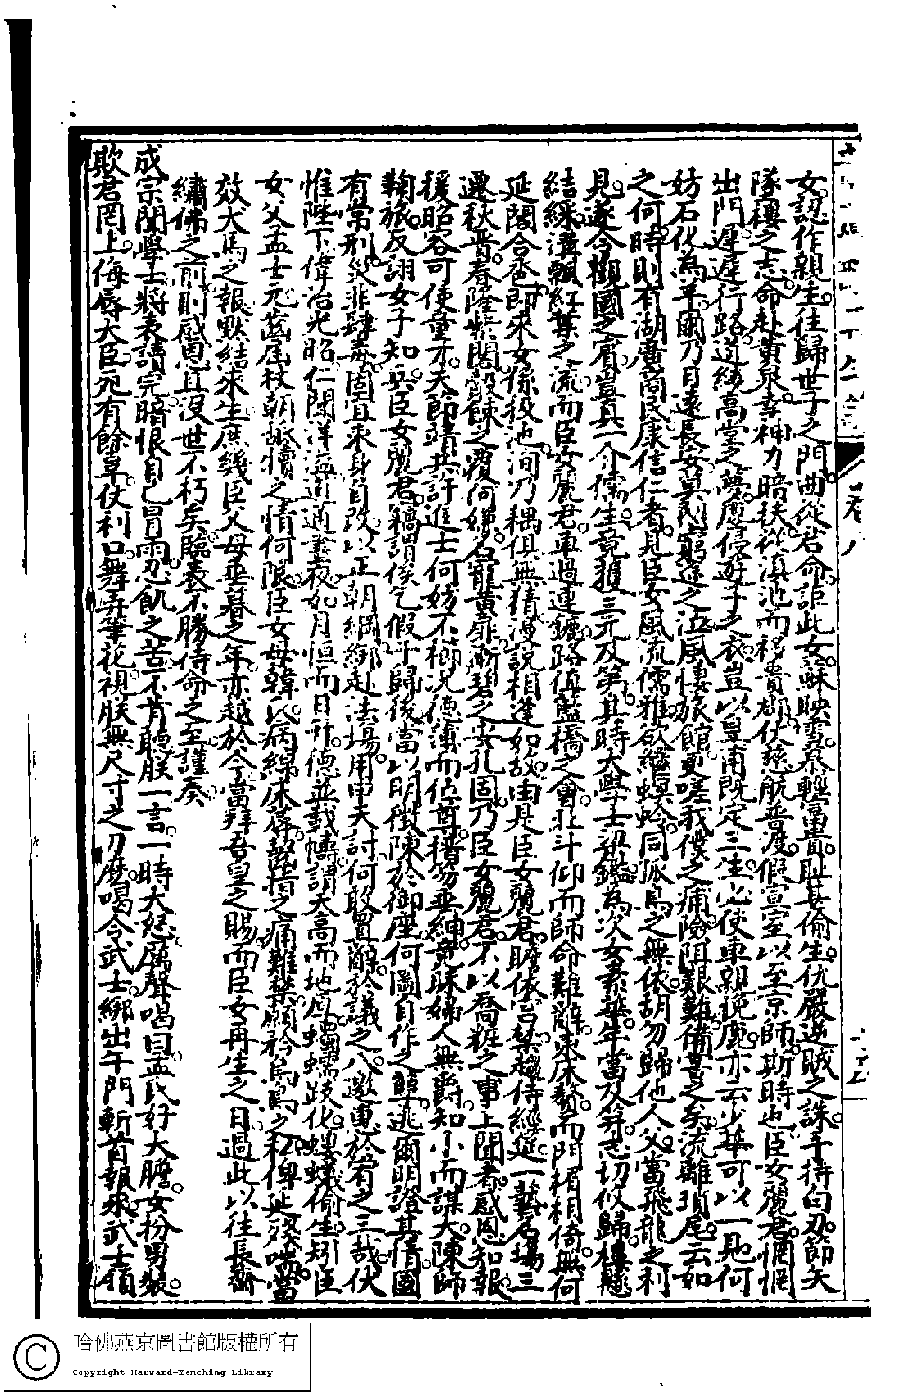 女認作親生往歸世子之門曲從君命詎此女蘇映雪忝輕富貴恥其偷生仇嚴逆賊之誅手持白刃節矢
墜樓之志命赴黃泉幸神力暗扶從滇池而移貴都仗慈航普渡假宣室以至京師斯時也臣女麗君惘惘
出門遲遲行路道綿高堂之夢塵侵遊子之衣豈以皇甫既定三生必使車親挽鹿亦云少華可以一見何
妨石化為羊爾乃日遠長安莫測窮途之泣風悽旅館更嗟我僕之痡險阻艱難備嘗之矣流離瑣尾云如
之何時則有湖廣商民康信仁者見臣女風流儒雅欲繼螟蛉同孤鳥之無依胡勿歸他人父當飛龍之利
見遂令觀國之賓豈其一介儒生竟獲三元及第其時大學士梁鑑為次女素華年當及笄志切似歸樓懸
結綵溝飄紅葉之流而臣女麗君車過連鑣路值藍橋之會在斗仰而師命難辭東床贅而門楣相倚無何
延閣合巹即來女係投池洵乃耦俱無猜漫說相逢如故由是臣女麗君瞻依宮禁趨侍經筵一藝名場三
遷秋晉春陞紫閣餗之覆何嫌名寵黃扉筋碧之安孔固乃臣女麗君不以喬粧之事上聞者感恩知報
援昭容可使量才天節靖共許進士何妨不櫛况德薄而位尊搢笏垂紳竟昧婦人無爵知小而謀大陳師
鞠旅反詡女子知兵臣女麗君竊謂俟乞假于歸後當以明徵陳於御座何圖自作之孽逃爾明證其情國
有常刑災非肆毒固宜束身自改以正朝綱綁赴法場用申天討何敢置辭於議之八邀惠於宥之三哉伏
惟陛下偉冶光昭仁開洋海道通晝夜如月恒而日升德並載幬謂天高而地厚蠕蠕歧化螻蟻偷生矧臣
女父孟士元薦居杖朝舐犢之情何限臣女母韓氏病綿床席龍鍾之痛難禁願矜烏鳥之私俾延殘喘當
效犬馬之報默結來生庶幾臣父母垂暮之年亦越於今當拜吾皇之賜而臣女再生之日過此以往長齋
繡佛之前則感恩且沒世不朽矣臨表不勝待命之至謹奏
成宗聞學士將表讀完暗恨自己冒雨忍飢之苦不肯聽朕一言一時大怒厲聲喝曰孟氏好大膽女扮男裝
欺君罔上侮辱大臣死有餘辜仗利口舞弄筆花視朕無尺寸之刃麼喝令武士綁出午門斬首報來武士領
卷八
哈佛燕京圖書館版權所有
Copyright Harvard-Yenching Library